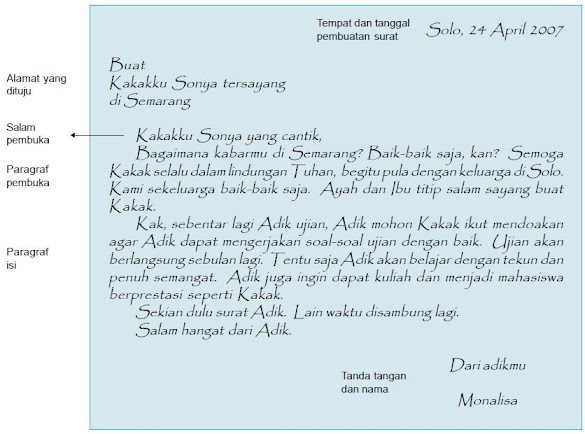 Tempat dan tanggal
pembuatan surat
Solo, 24 April 2007
Buat
Alamat yang
dituju
Kakakku Sonya tersayang
di Semarang
Salam
pembuka
Kakakku Sonya yang cantik,
Bagaimana kabarmu di Semarang? Baik-baik saja, kan? Semoga
Paragraf
pembuka
Kakak selalu dalam lindungan Tuhan, begitu pula dengan keluarga di Solo.
Kami sekeluarga baik-baik saja. Ayah dan Ibu titip salam sayang buat
Kakak.
Kak, sebentar lagi Adik ujian, Adik mohon Kakak ikut mendoakan
Paragraf
isi
agar Adik dapat mengerjakan soal-soal ujian dengan baik. Ujian akan
berlangsung sebulan lagi. Tentu saja Adik akan belajar dengan tekun dan
penuh semangat. Adik juga ingin dapat kuliah dan menjadi mahasiswa
berprestasi seperti Kakak.
Sekian dulu surat Adik. Lain waktu disambung lagi.
Salam hangat dari Adik.
Tanda tangan
dan nama
Dari adikmu
Monalisa